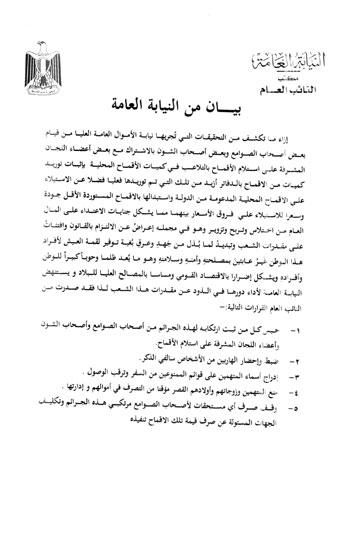 النيابة العامة
مكتب
النائب العام
بيـــان من النيابة العامة
إزاء ما تكشف من التحقيقات التي تُجريها نيابة الأموال العامة العليا من قيام
بعض أصحاب الصوامع وبعض أصحاب الشون بالاشتراك مع بعض أعضاء اللجان
المشرفة على استلام الأقماح بالتلاعب في كميات الأقماح المحلية بإثبات توريد
كميات من الأقماح بالدفاتر أزيد من تلك التي تم توريدها فعليا فضلا عن الاستيلاء
على الأقماح المحلية المدعومة من الدولة واستبدالها بالأقماح المستوردة الأقل جودة
وسعرا للاستيلاء على فروق الأسعار بينهما مما يشكل جنايات الاعتداء على المال
العام من اختلاس وتربح وتزوير وهو في مجمله إعراضٌ عن الالتزام بالقانون وافتئاتٌ
على مقدرات الشعب وتبديدٌ لما بُذل من جَهدٍ وعرقٍ بُغية توفير لقمة العيش لأفراد
هذا الوطن غيرُ عابئين بمصلحته وأمنه وسلامته وهو ما يُعد ظلما وحوباً كبيراً للوطن
وأفراده ويشكل إضرارا بالاقتصاد القومي ومساسا بالمصالح العليا للبلاد و يستنهض
النيابة العامة لأداء دورها في الذود عن مقدرات هذا الشعب لذا فقد صدرت من
النائب العام القرارات التالية:-
١- حبس كل من ثبت ارتكابه لهذه الجرائم من أصحاب الصوامع وأصحاب الشون
وأعضاء اللجان المشرفة على استلام الأقماح.
٢- ضبط وإحضار الهاربين من الأشخاص سالفي الذكر.
٣- إدراج أسماء المتهمين على قوائم الممنوعين من السفر وترقب الوصول.
٤- منع المتهمين وزوجاتهم وأولادهم القصر مؤقتا من التصرف في أموالهم و إدارتها .
٥- وقف صرف أي مستحقات لأصحاب الصوامع مرتكبي هذه الجرائم وتكليف
الجهات المسئولة عن صرف قيمة تلك الأقماح تنفيذه